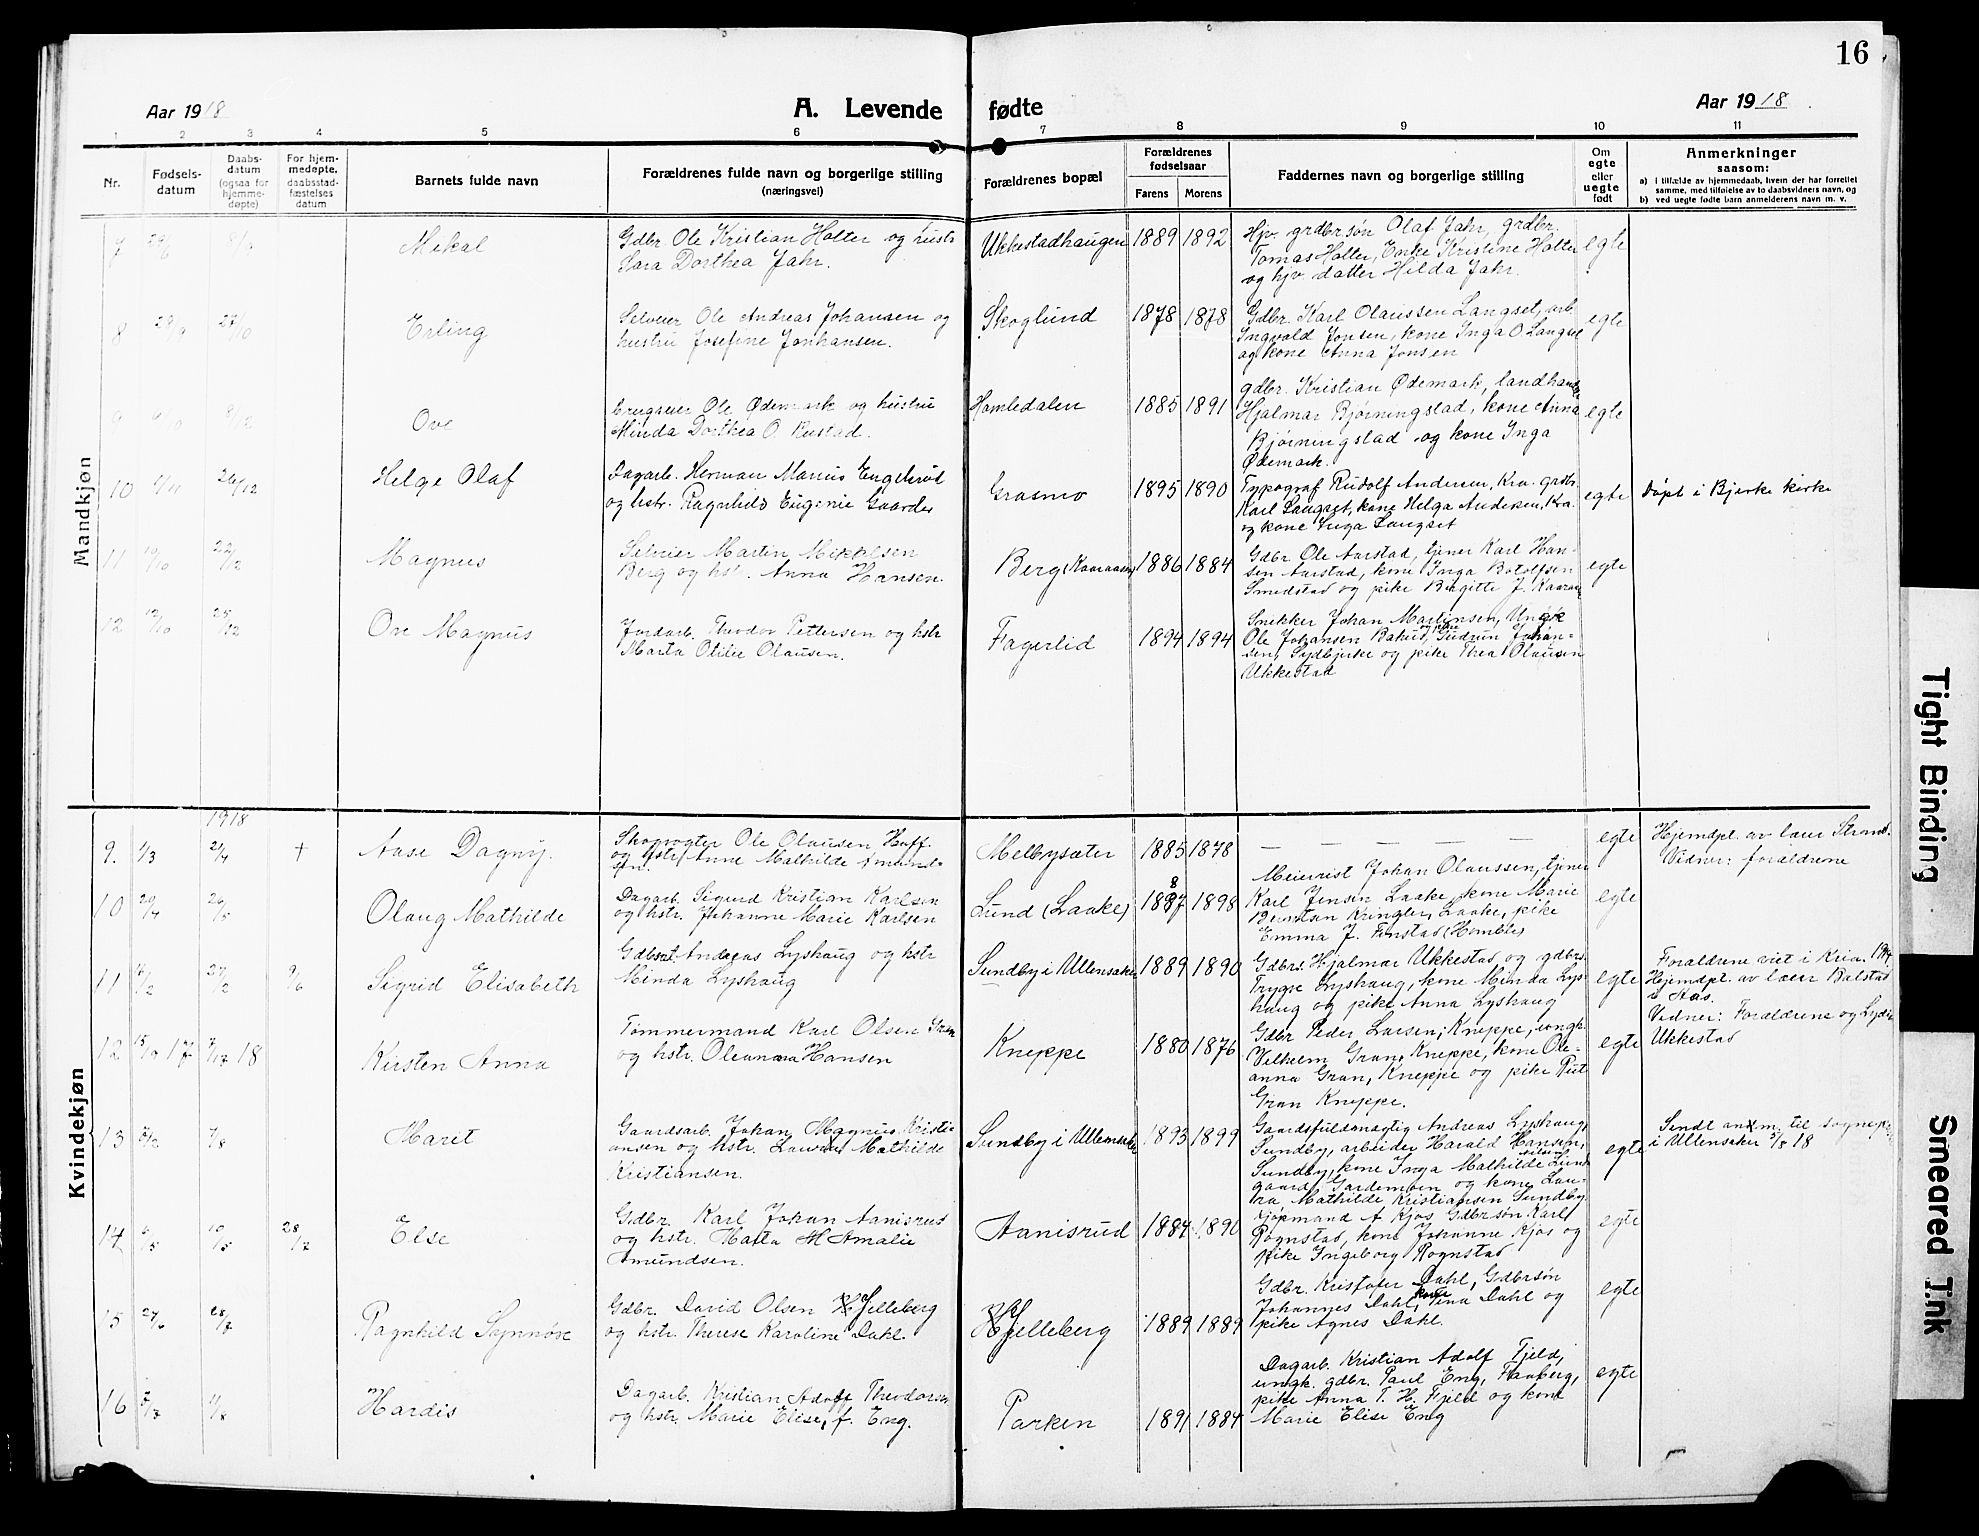 16
Aar 1918
A. Levende fødte
Aar 1918
1 2 3 4 5 6 7 8 9 10 11
Nr.
Fødsels-
datum
Daabs-
datum
(ogsaa for
hjemme-
døpte)
For hjem-
medøpte,
daabsstad-
fæstelses
datum
Barnets fulde navn
Forældrenes fulde navn og borgerlige stilling
(næringsvei)
Forældrenes bopæl
Forældrenes
fødselsaar
Farens
Morens
Faddernes navn og borgerlige stilling
Om
egte
eller
uegte
født
Anmerkninger
saasom:
a) i tilfælde av hjemmedaab, hvem der har forrettet
samme, med tilføielse av to daabsvidners navn, og
b) ved uegte fødte barn anmelderens navn m. v.
Mandkjøn
7
Mekal
Gdbr Ole Kristian Holter og hustr
Sara Dorthea Jahr.
Ukkestadhaugen
1889 1892
Hjv. grdbrsøn Olaf Jahr, grdbr.
Tomas Holter, Enke Kristine Holter
og hjv datter Hilda Jahr.
egte
8 29/9 27/10
Erling
Selveier Ole Andreas Johansen og
hustru Josefine Jonhansen.
Skoglund
1878 1878
Gdbr. Karl Olaussen Langset, arb.
Ingvald Jonsen, kone Inga O Langset
og kone Anna Jonsen
egte
9 6/10 8/12
Ove
brugseier Ole Ødemark og hustru
Minda Dorthea O. Rustad.
Homledalen
1885 1891
gdbr. Kristian Ødemark, landhandle
Hjalmar Bjørningstad, kone Anna
Bjørningstad og kone Inga
Ødemark.
egte
10 26/12
Helge Olaf
Dagarb. Herman Marius Engelsrud
og hstr. Ragnhild Eugenie Gaarder
Grasmo
1895 1890
Typograf Rudolf Andersen, Kra. grdbr.
Karl Langset, kone Helga Andersen, Kra.
og kone Inga Langset
egte
Døpt i Bjerke kirke
11 10/10 22/12
Magnus
Selveier Martin Mikkelsen
Berg og hst. Anna Hansen.
Berg (Kaaraasen)
1886 1884
Gdbr. Ole Aarstad, tjener Karl Han-
sen Aarstad, kone Inga Botolfsen
Smedstad og pike Birgitte J.
egte
12 12/10 25/12
Ove Magnus
Jordarb. Theodor Pettersen og hstr
Marta Otilie Olausen.
Fagerlid
1894 1894
Snekker Johan Martinsen, Ungk
Ole Johansen Bakud, pike Gudrun Johan-
sen, Sydbjerke og pike Thea Olausen
Ukkestad
Kvindekjøn
1918
9. 1/3 21/4 †
Aase Dagny.
Skogvogter Ole Olausen Hoff
og hstr Anne Mathilde Amund-
sen.
Melbysæter
1885 1878
— — — — — —
egte
Hjemdøpt. av læer Strand.
Vidner: forældrene
10 29/4 26/5
Olaug Mathilde
Dagarb. Sigurd Kristian Karlsen
og hstr. Johanne Marie Karlsen
Lund (Laake)
1887 1898
Meierist Johan Olaussen, tjener
Karl Jensen Laake, kone Marie
Berntsen Kringler, Laake, pike
Emma J. Finstad (Homble)
egte
11 27/2 9/6
Sigrid Elisabeth
Gdbest. Andreas Lyshaug og hstr
Minda Lyshaug
Sundby i Ullensaker
1889 1890
Gdbrs. Hjalmar Ukkestad og gdbrs.
Trygve Lyshaug, kone Minda Lys-
haug og pike Anna Lyshaug
egte
Forældrene viet i Kria. 1914
Hjemdøpt. av læer Balstad
i Aas.
Vidner: Forældrene og Lydia
Ukkestad
12 15/9 17 18
Kirsten Anna
Tømmermand Karl Olsen Gran
og hstr. Oleanna Hansen
Kneppe
1880 1876
Gdbr Peder Larsen, Kneppe, ungk.
Vilhelm Gran, Kneppe, kone Ole-
anna Gran, Kneppe og pike Rut
Gran Kneppe.
egte
13 7/8
Marit
Gaardsarb. Johan Magnus Kristi-
ansen og hstr. Laura Mathilde
Kristiansen.
Sundby i Ullensaker
1893 1899
Gaardsfuldmægtig Andreas Lyshaug,
Sundby, arbeider Harald Hansen,
Sundby, kone Inga Mathilde Lund
gaard, Gardemoen og kone Lau-
ra Mathilde Kristiansen Sundby.
egte
Sendt anm. til sognepr.
i Ullensaker 5/8 18
14 6/5 19/5 28/7
Else
Gdbr. Karl Johan Aanisrud
og hstr. Marta M Amalie
Amundsen.
Aanisrud
1884 1890
Kjøpmand A Kjos Gdbrsøn Karl
Rognstad, kone Johanne Kjos og
pike Ingeborg Rognstad
egte
15 27/6 28/7
Ragnhild Synnøve
Gdbr. David Olsen Hjelleberg
og hstr. Therese Karoline Dahl.
Hjelleberg
1889 1889
Gdbr. Kristofer Dahl, Gdbrsøn
Johannes Dahl, kone Tina Dahl og
pike Agnes Dahl.
egte
16
Hardis
Dagarb. Kristian Adolf Theodorsen
og hstr. Marie Elise, f. Eng.
Parken
1891 1884
Dagarb. Kristian Adolf Fjeld,
ungk. gdbr. Paul Eng, Flauberg,
pike Anna T. H. Fjeld og kone
Marie Elise Eng
egte
Tight Binding
Smeared Ink